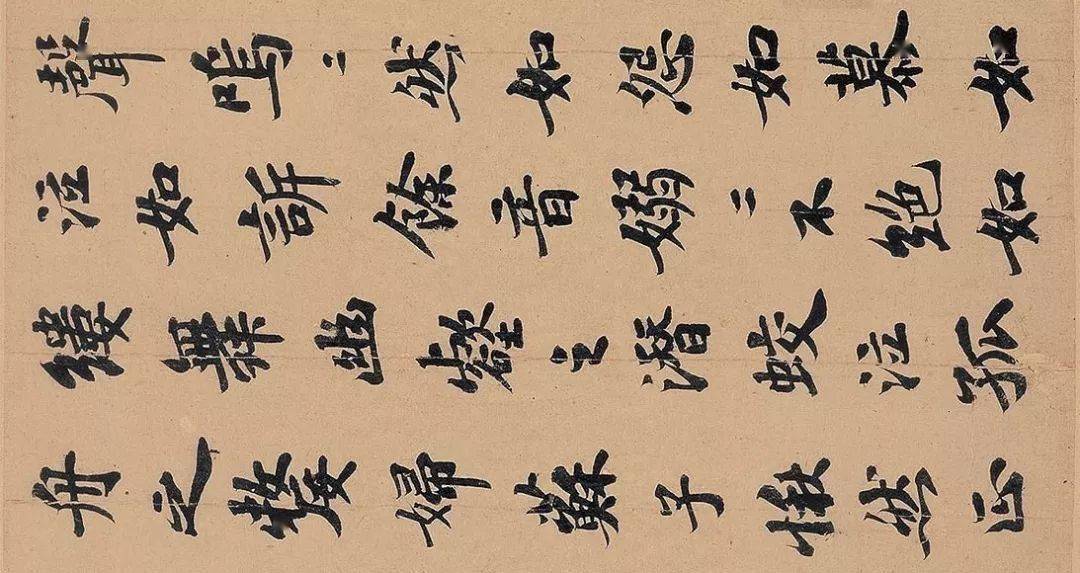 聲嗚々然如怨如慕如
泣如訴餘音嫋々不絶如
縷舞幽壑之潛蛟泣孤
舟之嫠婦蘇子愀然正